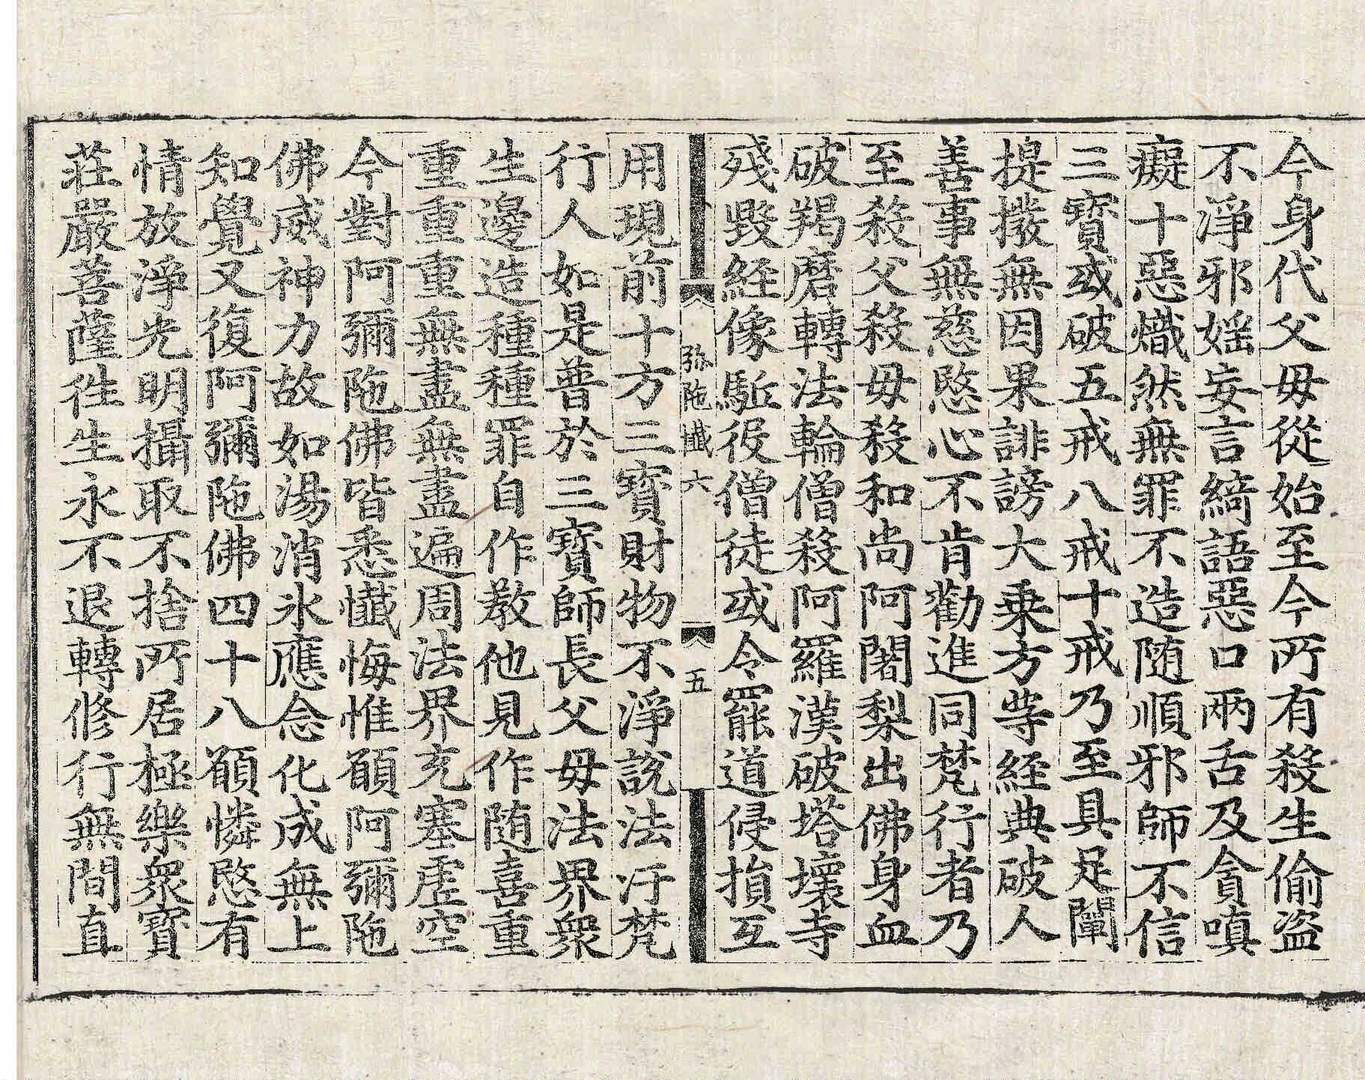 今身代父毋從始至今所有殺生偷盗
不淨邪婬妄言綺語惡口兩舌及貪嗔
癡十惡熾然無罪不造随順邪師不信
三寳或破五戒八戒十戒乃至具足闡
提撥無因果誹謗大乗方等経典破人
善事無慈愍心不肯勸進同梵行者乃
至殺父殺毋殺和尚阿闍梨出佛身血
破羯磨轉法輪僧殺阿羅漢破塔壞寺
殘毀経像駈役僧徒或令罷道侵損互
弥陁懺六
五
用現前十方三寳財物不淨説法汙梵
行人如是普於三寳師長父毋法界衆
生邊造種種罪自作教他見作随喜重
重重重無盡無盡遍周法界充塞虚空
今對阿彌陁佛皆悉懺悔惟願阿彌陁
佛威神力故如湯消氷應念化成無上
知覺又復阿彌陁佛四十八願憐愍有
情放淨光明攝取不捨所居極樂衆寳
莊嚴菩薩徃生永不退轉修行無間直